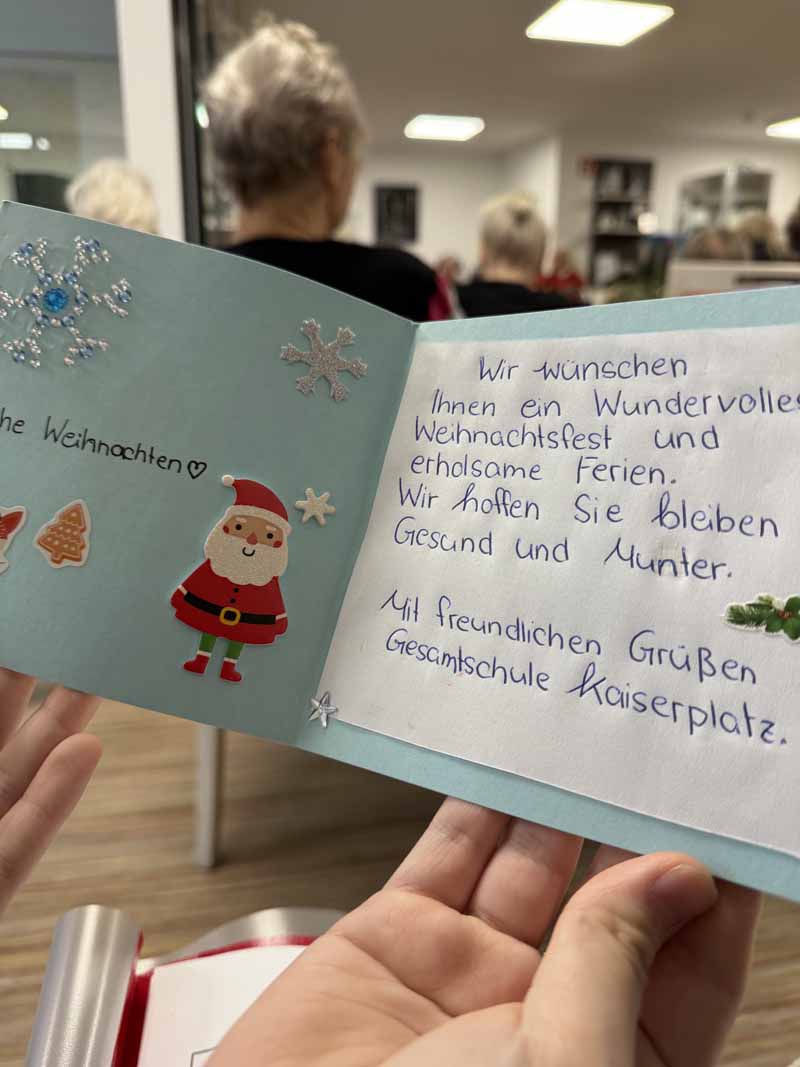 he Weihnachten♡
Wir wünschen
Ihnen ein Wundervolles
Weihnachtsfest und
erholsame Ferien.
Wir hoffen Sie bleiben
Gesund und Munter.
Mit freundlichen Grüßen
Gesamtschule Kaiserplatz.